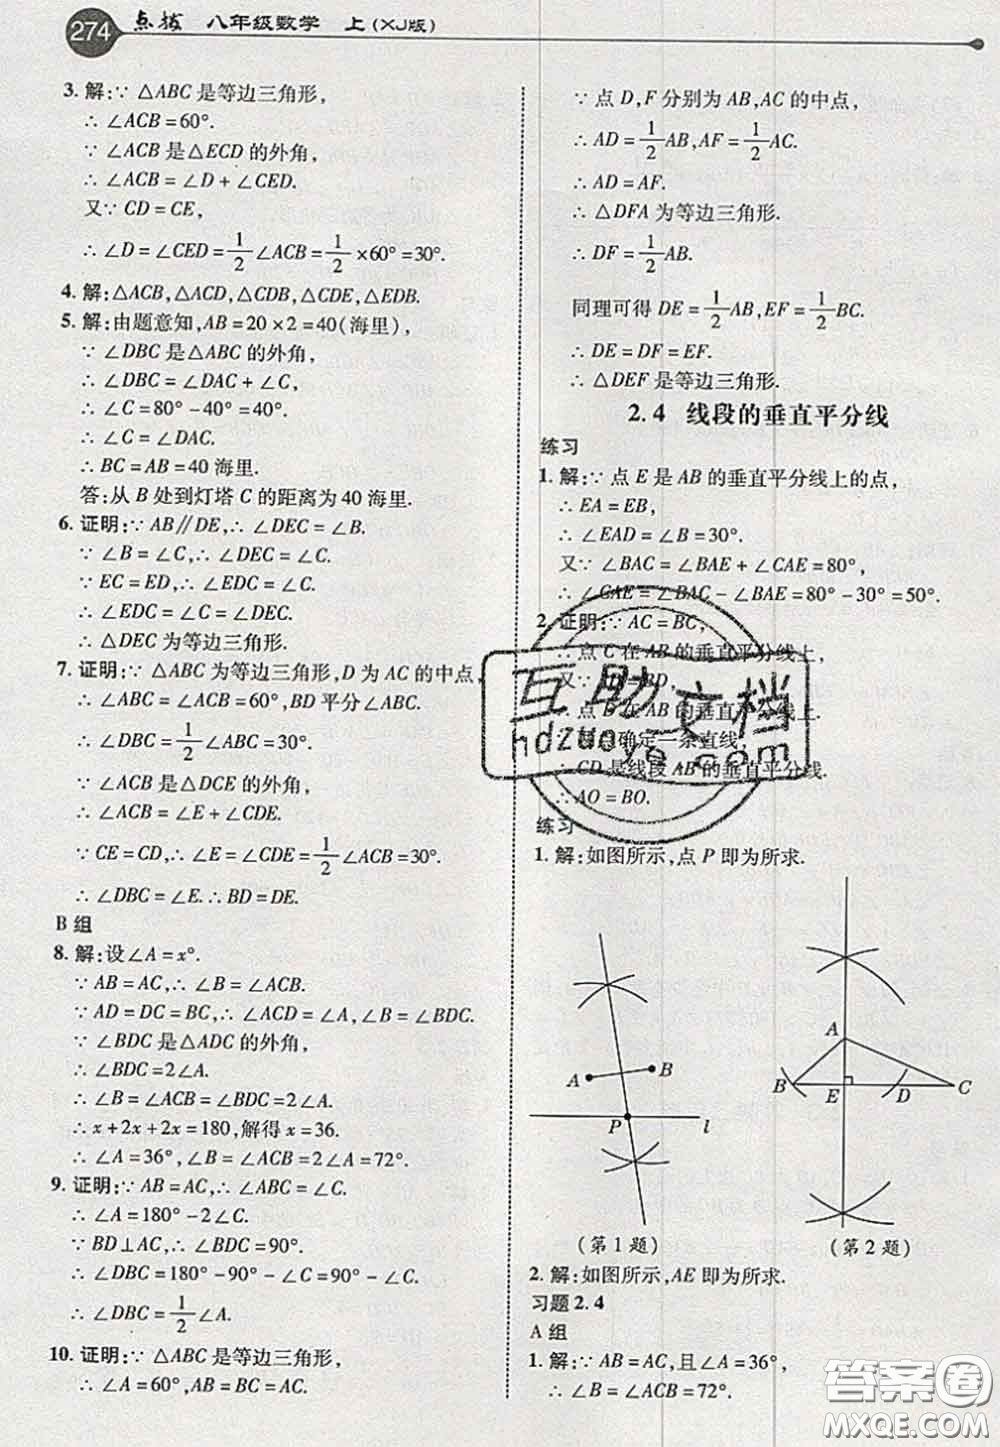 274 点拨 八年级数学 上(XJ版)
3. 解:∵ △ABC 是等边三角形,
∴ ∠ACB=60°.
∵ ∠ACB 是△ECD 的外角,
∴ ∠ACB=∠D+∠CED.
又∵ CD=CE,
∴ ∠D=∠CED=1/2∠ACB=1/2×60°=30°.
4. 解:△ACB,△ACD,△CDB,△CDE,△EDB.
5. 解:由题意知,AB=20×2=40(海里),
∵ ∠DBC 是△ABC 的外角,
∴ ∠DBC=∠DAC+∠C,
∴ ∠C=80°-40°=40°.
∴ ∠C=∠DAC.
∴ BC=AB=40 海里.
答:从 B 处到灯塔 C 的距离为 40 海里.
6. 证明:∵ AB∥DE,∴ ∠DEC=∠B.
∵ ∠B=∠C,∴ ∠DEC=∠C.
∵ EC=ED,∴ ∠EDC=∠C.
∴ ∠EDC=∠C=∠DEC.
∴ △DEC 为等边三角形.
7. 证明:∵ △ABC 为等边三角形,D 为 AC 的中点,
∴ ∠ABC=∠ACB=60°,BD 平分∠ABC.
∴ ∠DBC=1/2∠ABC=30°.
∵ ∠ACB 是△DCE 的外角,
∴ ∠ACB=∠E+∠CDE.
∵ CE=CD,∴ ∠E=∠CDE=1/2∠ACB=30°.
∴ ∠DBC=∠E.∴ BD=DE.
B 组
8. 解:设∠A=x°.
∵ AB=AC,∴ ∠B=∠ACB.
∵ AD=DC=BC,∴ ∠ACD=∠A,∠B=∠BDC.
∵ ∠BDC 是△ADC 的外角,
∴ ∠BDC=2∠A.
∴ ∠B=∠ACB=∠BDC=2∠A.
∴ x+2x+2x=180,解得 x=36.
∴ ∠A=36°,∠B=∠ACB=2∠A=72°.
9. 证明:∵ AB=AC,∴ ∠ABC=∠C.
∴ ∠A=180°-2∠C.
∵ BD⊥AC,∴ ∠BDC=90°.
∴ ∠DBC=180°-90°-∠C=90°-∠C.
∴ ∠DBC=1/2∠A.
10. 证明:∵ △ABC 是等边三角形,
∴ ∠A=60°,AB=BC=AC.
∵ 点 D,F 分别为 AB,AC 的中点,
∴ AD=1/2AB,AF=1/2AC.
∴ AD=AF.
∴ △DFA 为等边三角形.
∴ DF=1/2AB.
同理可得 DE=1/2AB,EF=1/2BC.
∴ DE=DF=EF.
∴ △DEF 是等边三角形.
2.4 线段的垂直平分线
练习
1. 解:∵ 点 E 是 AB 的垂直平分线上的点,
∴ EA=EB,
∴ ∠EAD=∠B=30°.
又∵ ∠BAC=∠BAE+∠CAE=80°,
∴ ∠CAE=∠BAC-∠BAE=80°-30°=50°.
2. 证明:∵ AC=BC,
∴ 点 C 在 AB 的垂直平分线上,
又∵ AD=BD,
∴ 点 D 在 AB 的垂直平分线上.
确定一条直线,
∴ CD 是线段 AB 的垂直平分线.
∴ AO=BO.
练习
1. 解:如图所示,点 P 即为所求.
A B P l
A B E D C
(第 1 题) (第 2 题)
2. 解:如图所示,AE 即为所求.
习题 2.4
A 组
1. 解:∵ AB=AC,且∠A=36°,
∴ ∠B=∠ACB=72°.
互助文档
hdzuoye.com
答案圈
MXQE.COM